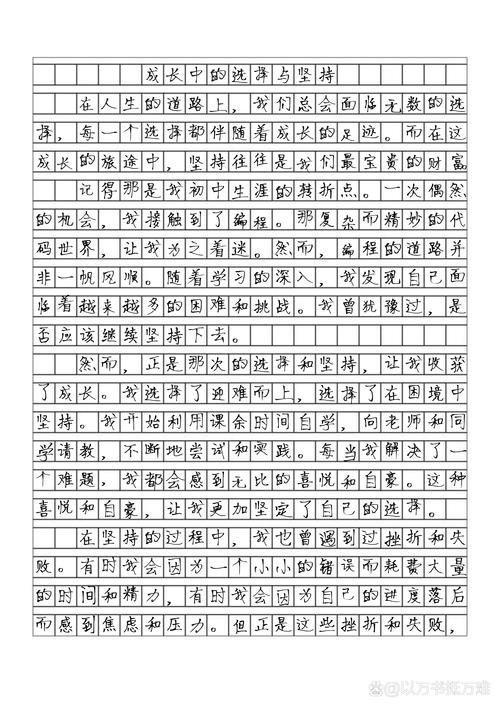 成长中的选择与坚持
在人生的道路上，我们总会面临无数的选
择，每一个选择都伴随着成长的足迹。而在这
成长的旅途中，坚持往往是我们最宝贵的财富
记得那是我初中生涯的转折点。一次偶然
的机会，我接触到了编程。那复杂而精妙的代
码世界，让我为之着迷。然而，编程的道路并
非一帆风顺。随着学习的深入，我发现自己面
临着越来越多的困难和挑战。我曾犹豫过，是
否应该继续坚持下去。
然而，正是那次的选择和坚持，让我收获
了成长。我选择了迎难而上，选择了在困境中
坚持。我开始利用课余时间自学，向老师和同
学请教，不断地尝试和实践。每当我解决了一
个难题，我都会感到无比的喜悦和自豪。这种
喜悦和自豪，让我更加坚定了自己的选择。
在坚持的过程中，我也曾遇到过挫折和失
败。有时我会因为一个小小的错误而耗费大量
的时间和精力，有时我会因为自己的进度落后
而感到焦虑和压力。但正是这些挫折和失败，
@以万书抵万难